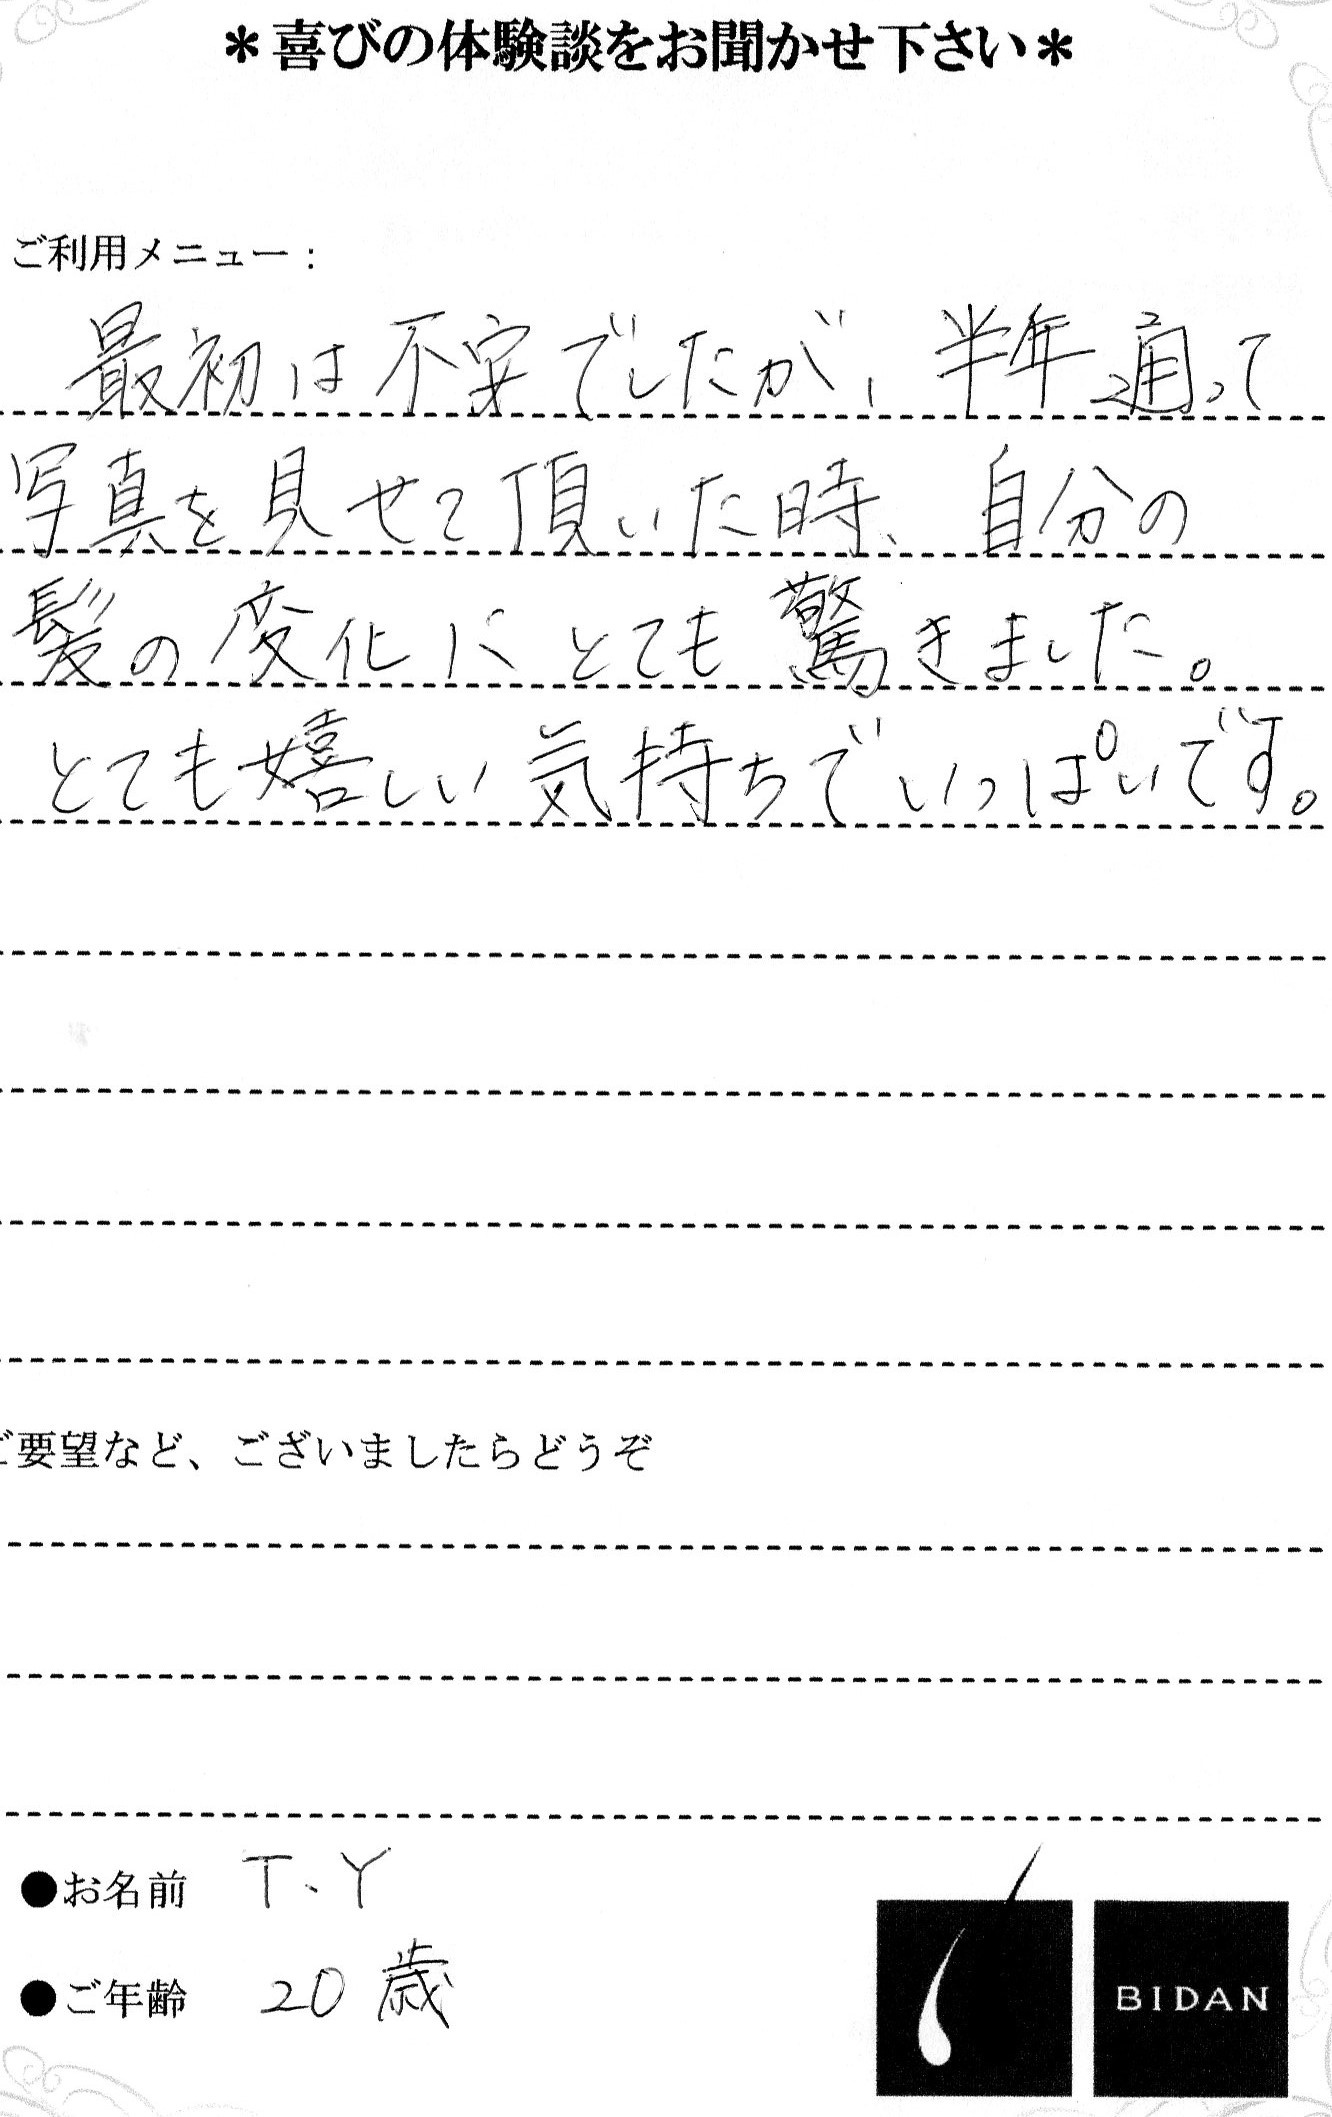 ＊喜びの体験談をお聞かせ下さい＊
ご利用メニュー：
最初は不安でしたが、半年通って
写真を見せて頂いた時、自分の
髪の変化にとても驚きました。
とても嬉しい気持ちでいっぱいです。
ご要望など、ございましたらどうぞ
●お名前 T、Y
●ご年齢 20歳
BIDAN